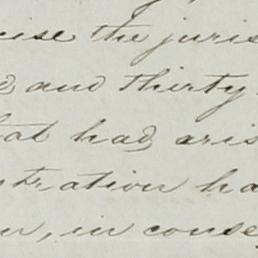 cise the juris
d and thirty
hat had aris
stration ha
n, in conse